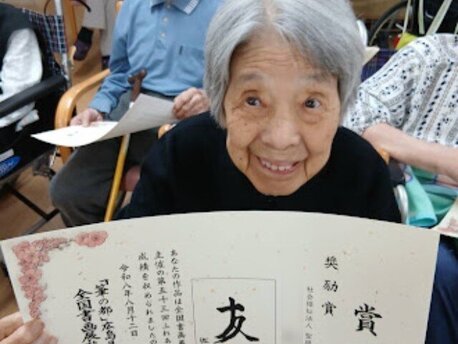 賞
奨励賞
社会福祉法人
友
あなたの作品は全国書画
主催の第五十三回ふれあ
成績を収められましたの
令和八年八月十二日
「筆の都」広
全国書画展